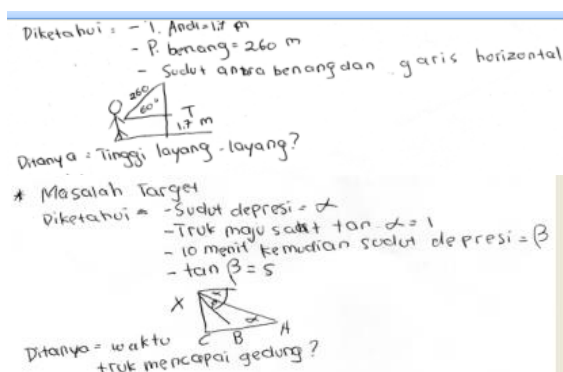 Diketahui : - T. Andi = 1.7 m
- P. benang = 260 m
- Sudut antara benang dan garis horizontal
260
60°
T
1.7 m
Ditanya : Tinggi layang-layang?
* Masalah Target
Diketahui = - Sudut depresi = α
- Truk maju saat tan α = 1
- 10 menit kemudian sudut depresi = β
- tan β = 5
X
α
C B A
Ditanya = waktu
truk mencapai gedung?